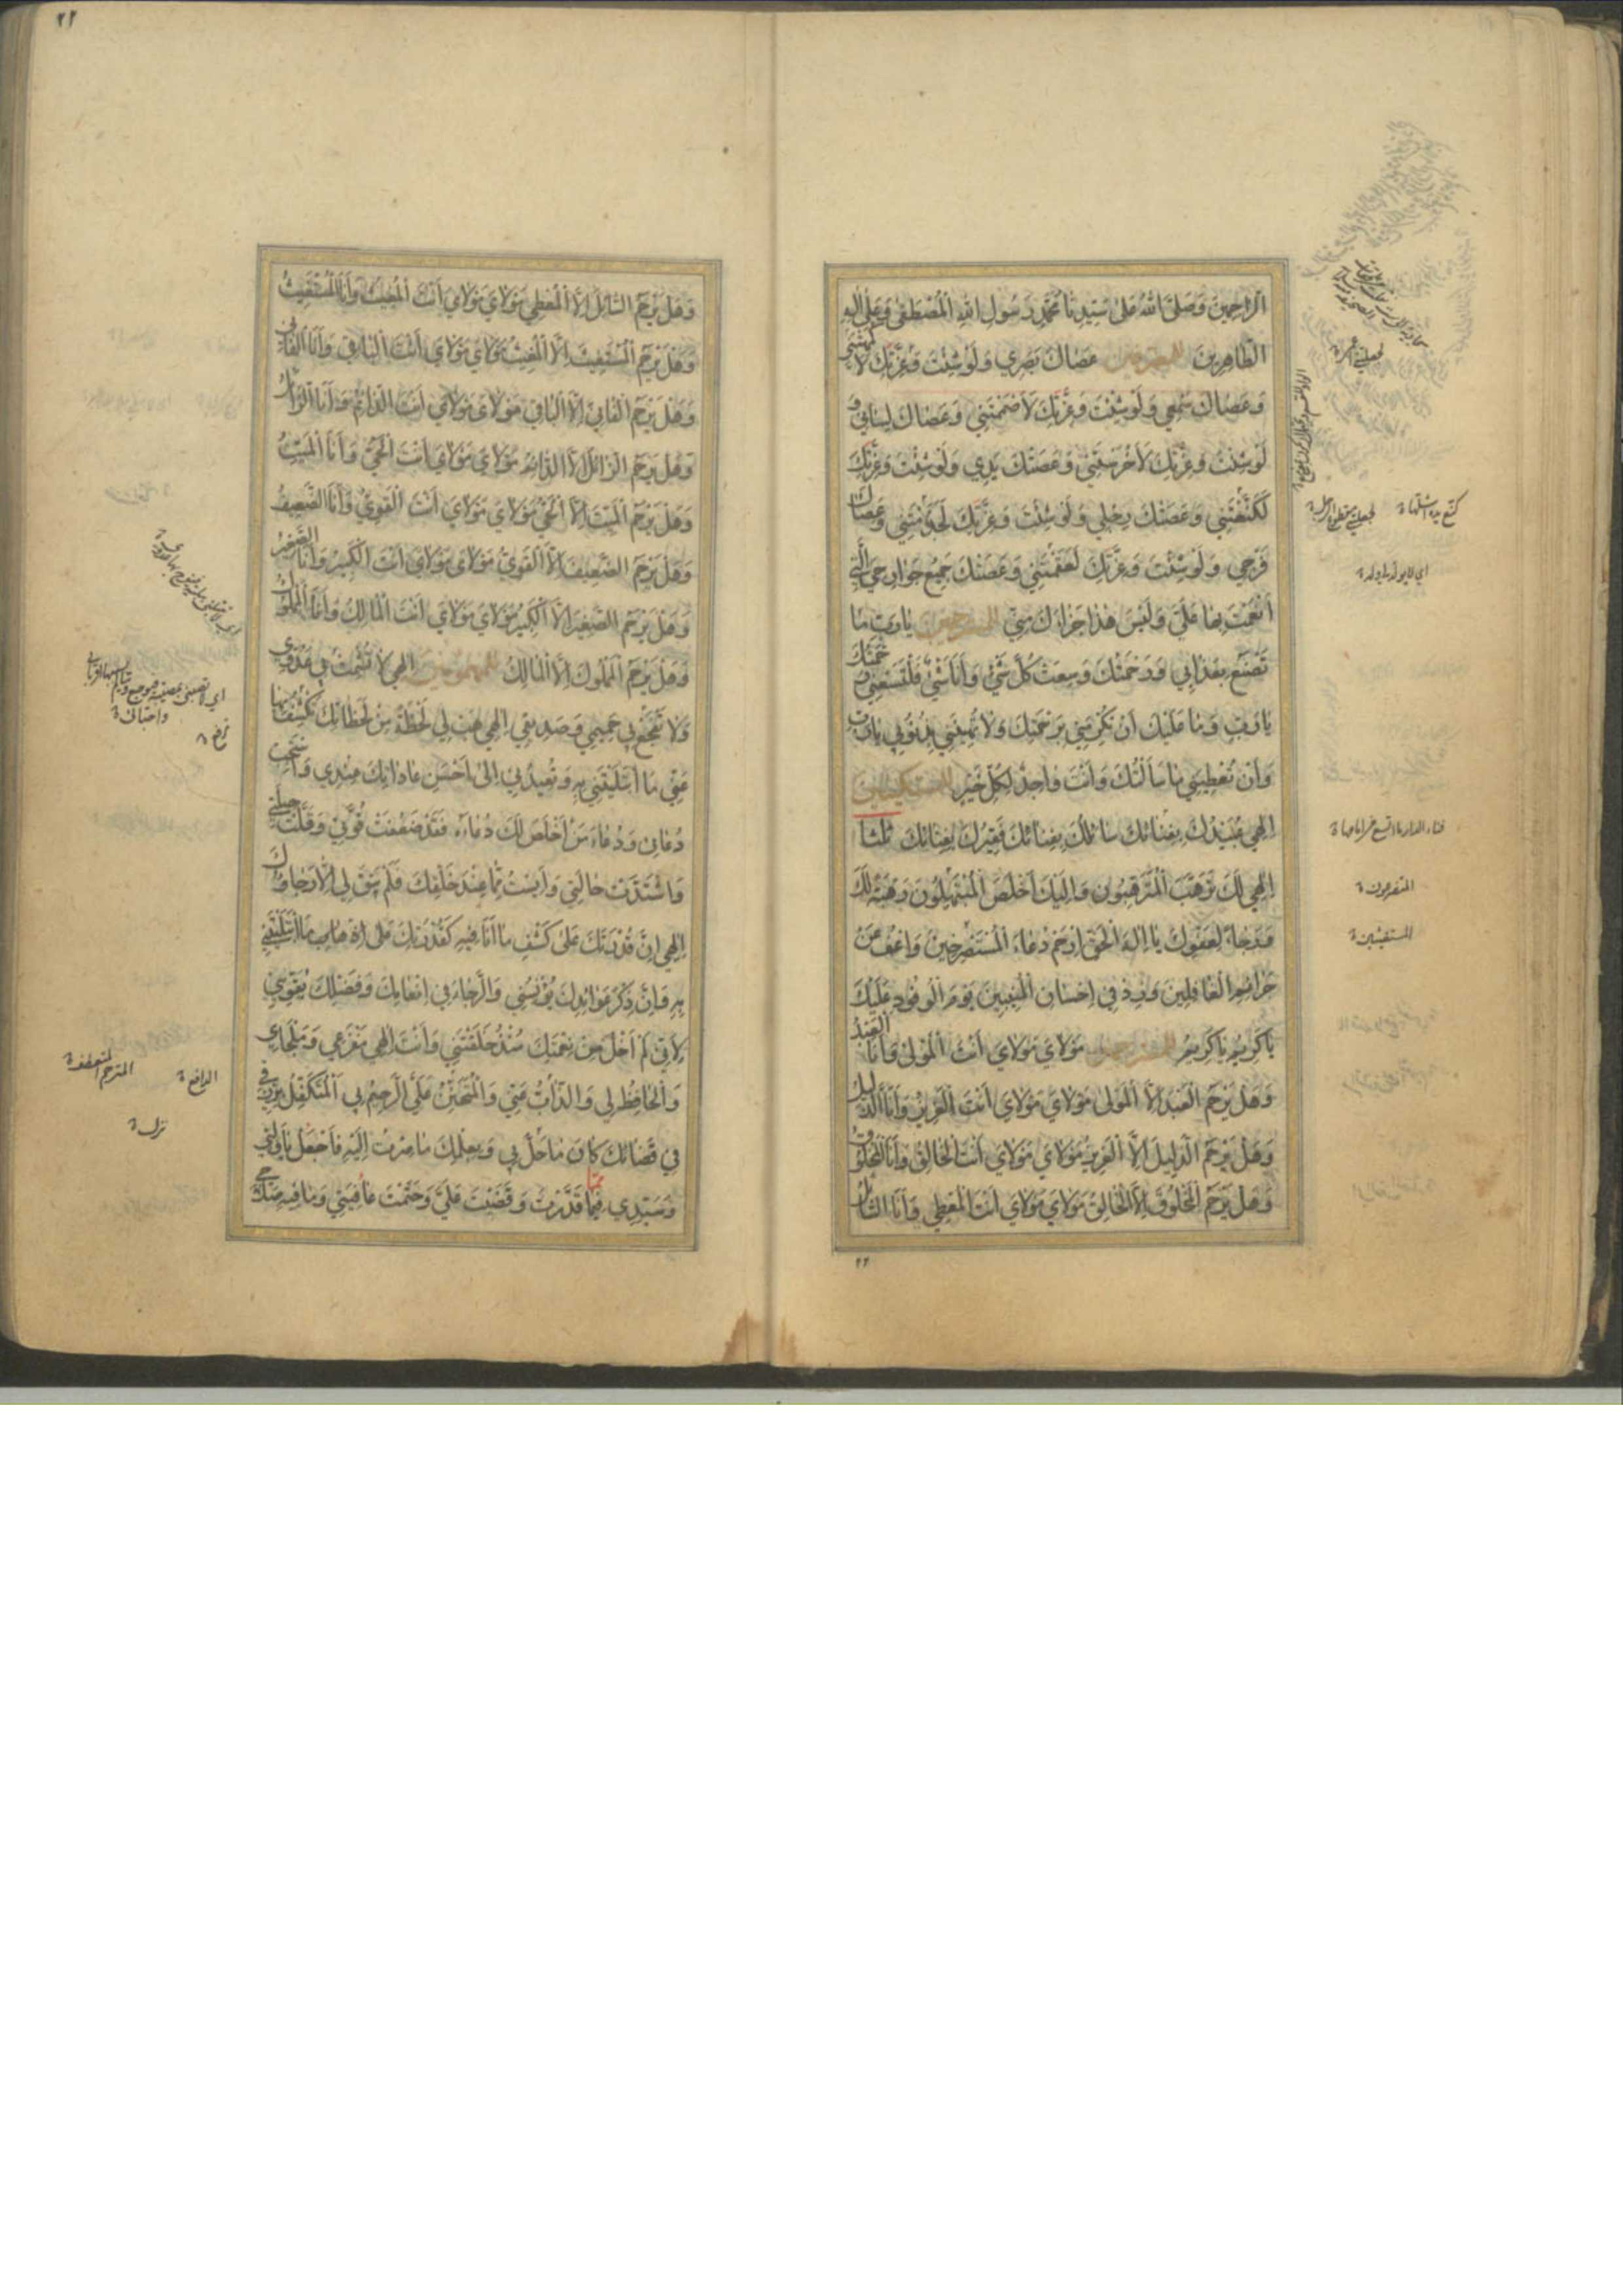 الرَّاحِمِينَ وَصَلَّى اللهُ عَلى سَيِّدِنا مُحَمَّدٍ رَسُولِ اللهِ الْمُصْطَفى وَعَلى الِهِ
الطَّاهِرِينَ للمعترفين عَصاكَ بَصَرِي وَلَوْ شِئْتَ وَعِزَّتِكَ لَأَكْمَهْتَنِي
وَعَصاكَ سَمْعِي وَلَوْ شِئْتَ وَعِزَّتِكَ لَأَصْمَمْتَنِي وَعَصاكَ لِسانِي وَ
لَوْ شِئْتَ وَعِزَّتِكَ لَأَخْرَسْتَنِي وَعَصَتْكَ يَدِي وَلَوْ شِئْتَ وَعِزَّتِكَ
لَكَنَّعْتَنِي وَعَصَتْكَ رِجْلِي وَلَوْ شِئْتَ وَعِزَّتِكَ لَجَذَمْتَنِي وَعَصاكَ
فَرْجِي وَلَوْ شِئْتَ وَعِزَّتِكَ لَعَقَمْتَنِي وَعَصَتْكَ جَمِيعُ جَوارِحِيَ الَّتِي
أَنْعَمْتَ بِها عَلَيَّ وَلَيْسَ هذا جَزاؤُكَ مِنِّي للمسترحمين يا رَبِّ ما
تَصْنَعُ بِعَذابِي وَرَحْمَتُكَ وَسِعَتْ كُلَّ شَيْءٍ وَأَنَا شَيْءٌ فَلْتَسَعْنِي رَحْمَتُكَ
يا رَبِّ وَما عَلَيْكَ أَنْ تُكْرِمَنِي بِرَحْمَتِكَ وَلا تُهِينَنِي بِذُنُوبِي يا رَبِّ
وَأَنْ تُعْطِيَنِي ما سَأَلْتُكَ وَأَنْتَ واجِدٌ لِكُلِّ خَيْرٍ للمستكينين
اِلهِي عُبَيْدُكَ بِفِنائِكَ سائِلُكَ بِفِنائِكَ فَقِيرُكَ بِفِنائِكَ ثلثا
اِلهِي لَكَ تَرَهَّبَ الْمُتَرَهِّبُونَ وَاِلَيْكَ أَخْلَصَ الْمُبْتَهِلُونَ رَهْبَةً لَكَ
وَرَجاءً لِعَفْوِكَ يا اِلهَ الْحَقِّ ارْحَمْ دُعاءَ الْمُسْتَصْرِخِينَ وَاعْفُ عَنْ
جَرائِمِ الْغافِلِينَ وَزِدْ فِي اِحْسانِ الْمُنِيبِينَ يَوْمَ الْوُفُودِ عَلَيْكَ
يا كَرِيمُ يا كَرِيمُ للمسترحمين مَوْلايَ مَوْلايَ أَنْتَ الْمَوْلى وَأَنَا الْعَبْدُ
وَهَلْ يَرْحَمُ الْعَبْدَ اِلَّا الْمَوْلى مَوْلايَ مَوْلايَ أَنْتَ الْعَزِيزُ وَأَنَا الذَّلِيلُ
وَهَلْ يَرْحَمُ الذَّلِيلَ اِلَّا الْعَزِيزُ مَوْلايَ مَوْلايَ أَنْتَ الْخالِقُ وَأَنَا الْمَخْلُوقُ
وَهَلْ يَرْحَمُ الْمَخْلُوقَ اِلَّا الْخالِقُ مَوْلايَ مَوْلايَ أَنْتَ الْمُعْطِي وَأَنَا السَّائِلُ
المتضرعون
المستغيثين
٢٢
وَهَلْ يَرْحَمُ السَّائِلَ اِلَّا الْمُعْطِي مَوْلايَ مَوْلايَ أَنْتَ الْمُغِيثُ وَأَنَا الْمُسْتَغِيثُ
وَهَلْ يَرْحَمُ الْمُسْتَغِيثَ اِلَّا الْمُغِيثُ مَوْلايَ مَوْلايَ أَنْتَ الْباقِي وَأَنَا الْفانِي
وَهَلْ يَرْحَمُ الْفانِيَ اِلَّا الْباقِي مَوْلايَ مَوْلايَ أَنْتَ الدَّائِمُ وَأَنَا الزَّائِلُ
وَهَلْ يَرْحَمُ الزَّائِلَ اِلَّا الدَّائِمُ مَوْلايَ مَوْلايَ أَنْتَ الْحَيُّ وَأَنَا الْمَيِّتُ
وَهَلْ يَرْحَمُ الْمَيِّتَ اِلَّا الْحَيُّ مَوْلايَ مَوْلايَ أَنْتَ الْقَوِيُّ وَأَنَا الضَّعِيفُ
وَهَلْ يَرْحَمُ الضَّعِيفَ اِلَّا الْقَوِيُّ مَوْلايَ مَوْلايَ أَنْتَ الْكَبِيرُ وَأَنَا الصَّغِيرُ
وَهَلْ يَرْحَمُ الصَّغِيرَ اِلَّا الْكَبِيرُ مَوْلايَ مَوْلايَ أَنْتَ الْمالِكُ وَأَنَا الْمَمْلُوكُ
وَهَلْ يَرْحَمُ الْمَمْلُوكَ اِلَّا الْمالِكُ للمهمومين اِلهِي لا تُشْمِتْ بِي عَدُوِّي
وَلا تَفْجَعْ بِي حَمِيمِي وَصَدِيقِي اِلهِي هَبْ لِي لَحْظَةً مِنْ لَحَظاتِكَ تَكْشِفُ بِها
عَنِّي مَا ابْتَلَيْتَنِي بِهِ وَتُعِيدُنِي اِلى أَحْسَنِ عاداتِكَ عِنْدِي وَاسْتَجِبْ
دُعائِي وَدُعاءَ مَنْ أَخْلَصَ لَكَ دُعاءَهُ فَقَدْ ضَعُفَتْ قُوَّتِي وَقَلَّتْ حِيلَتِي
وَاشْتَدَّتْ حالَتِي وَأَيِسْتُ مِمَّا عِنْدَ خَلْقِكَ فَلَمْ يَبْقَ لِي اِلَّا رَجاؤُكَ
اِلهِي اِنَّ قُدْرَتَكَ عَلى كَشْفِ ما أَنَا فِيهِ كَقُدْرَتِكَ عَلى مَا ابْتَلَيْتَنِي
بِهِ وَاِنَّ ذِكْرَ عَوائِدِكَ يُؤْنِسُنِي وَالرَّجاءَ فِي اِنْعامِكَ وَفَضْلِكَ يُقَوِّينِي
لِأَنِّي لَمْ أَخْلُ مِنْ نِعْمَتِكَ مُنْذُ خَلَقْتَنِي وَأَنْتَ اِلهِي مَفْزَعِي وَمَلْجَأِي
وَالْحافِظُ لِي وَالذَّابُّ عَنِّي وَالْمُتَحَنِّنُ عَلَيَّ الرَّحِيمُ بِي الْمُتَكَفِّلُ بِرِزْقِي
فِي قَضائِكَ كانَ ما حَلَّ بِي وَبِعِلْمِكَ ما صِرْتُ اِلَيْهِ فَاجْعَلْ يا وَلِيِّي
وَسَيِّدِي فِيما قَدَّرْتَ وَقَضَيْتَ عَلَيَّ وَحَتَمْتَ عافِيَتِي وَما فِيهِ صَلاحِي
الدافع
نزل
٢٢